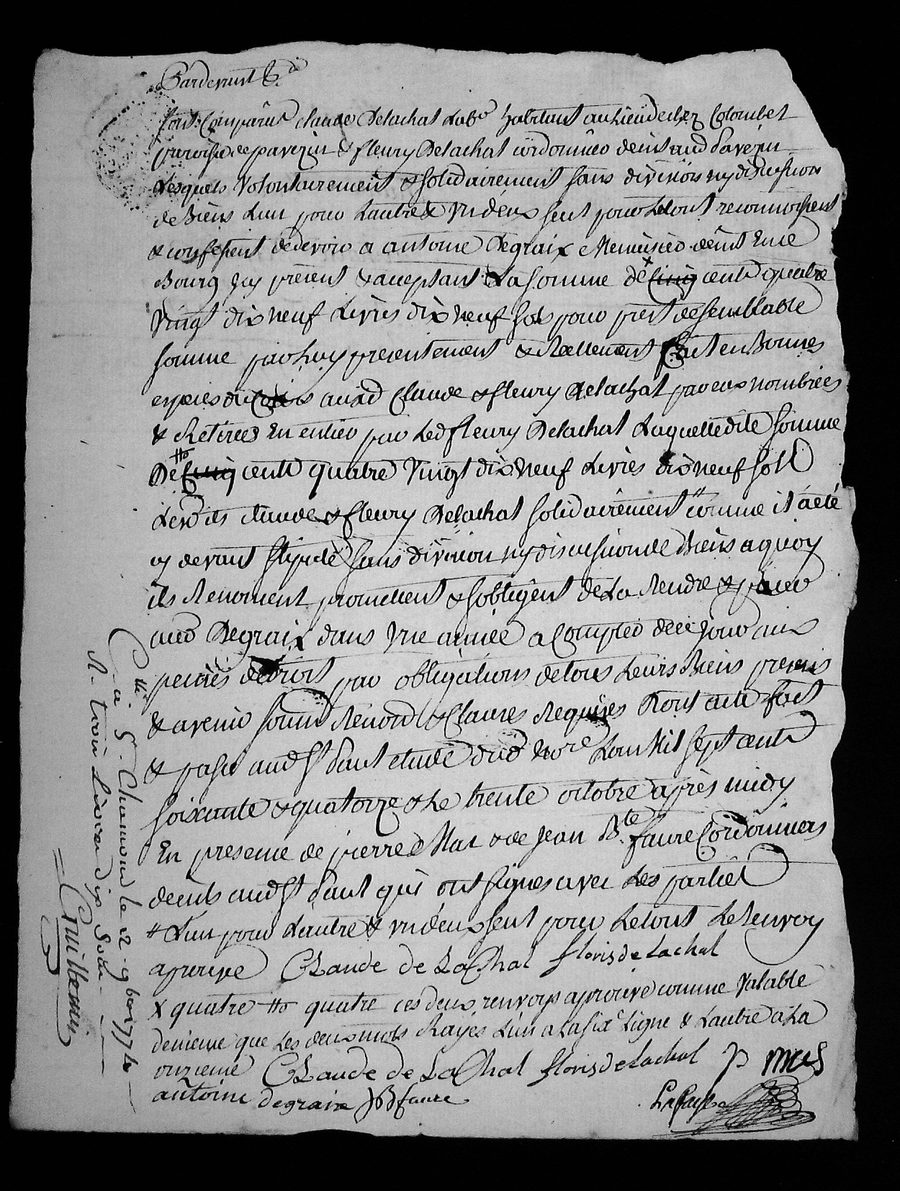 Pardevant &c.a
sont Comparus claude Delachal Labr habitant au Lieu de chez Colombet
paroisse de pavezin & fleury Delachal cordonnier de st and d'avezin
Lesquels Volontairement & solidairement sans division ny discution
de Biens L'un pour L'autre & un deux seul pour Letout reconnoissent
& confessent de devoir a antoine Degraix Menuisier dud st Eme
Bourg jcy present & acceptant La somme de x cinq cents quatre
Vingt dix neuf Livres dix neuf sols pour prest desemblable
somme par Luy presentement & Reellement fait en Bonnes
especes du cours aud Claude & fleury Delachal par eux nombrées
& Retirées En entier par Led fleury Delachal Laquelle dite somme
De tt cinq cents quatre Vingt dix neuf Livres dix neuf solz
Lesdits claude & fleury Delachal solidairement tt comme il a été
cy devant stipulé sans division ny discussion de Biens a quoy
ils Renoncent promettent & sobligent de La Rendre & paier
aud Degraix dans une année a Compter de ce jour aux
peines de droit par obligations de tous Leurs Biens presents
& avenir soumis Renond & Clauses Requises Dont acte fait
& passé aud st Etude dud nore L'an Mil sept cents
soixante & quatorze & Le trente octobre après midy
En presence de pierre Mas & de Jean Bte faure Cordonniers
dud st qui ont signés avec Les parties
tt L'un pour L'autre & un deux seul pour Letout Le renvoy
aprouvé CLaude de LaChal floris de Lachal
x quatre tt quatre ces deux renvoys aprouvé comme Valable
de meme que Les deux mots Rayes L'un a La sixe Ligne & L'autre a La
onzieme CLaude de LaChal floris de Lachal P mas
antoine degraix JB faure
Ctllé a St Chamond le 2 9bre 1774
R. trois Livres dix sols
Guillemin